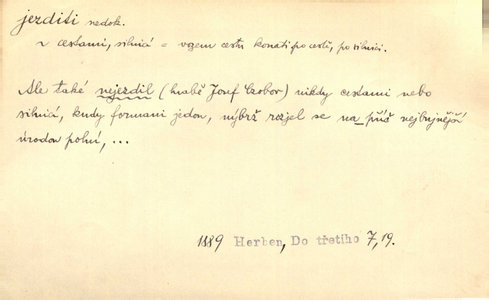 jezditi nedok.
cestami, silnicí = vozem cestu konati po cestě, po silnici.
Ale také nejezdil (hrabě Josef Czobor) nikdy cestami nebo
silnicí, kudy formani jedou, nýbrž rozjel se na příč nejbujnější
úrodou polní, ...
1889 Herben, Do třetího 7, 19.